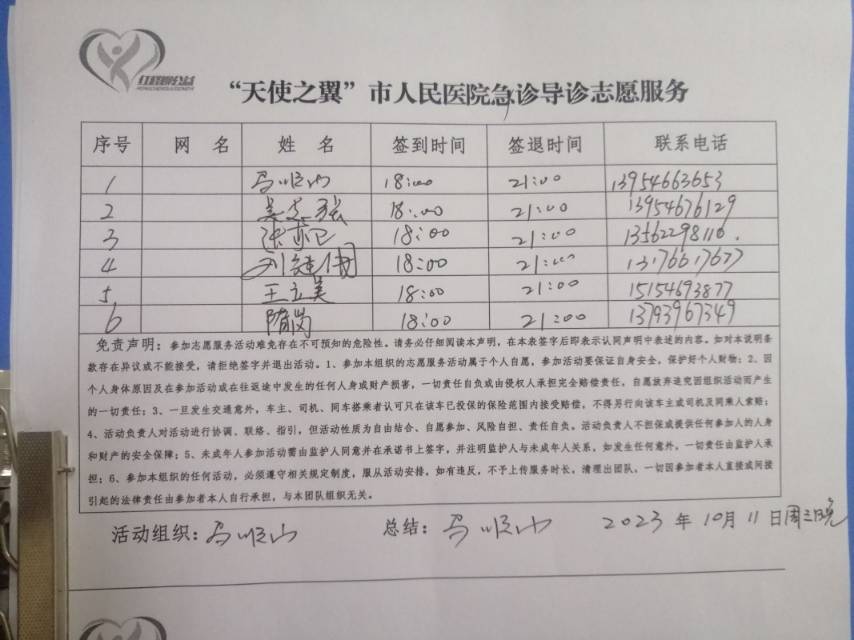 红丝带公益
“天使之翼”市人民医院急诊导诊志愿服务
序号 网 名 姓 名 签到时间 签退时间 联系电话
1 马顺山 18:00 21:00 13954663653
2 18:00 21:00 13954676129
3 张亦己 18:00 21:00 13562298116.
4 18:00 21:00 13176617677
5 王立美 18:00 21:00 15154693877
6 隋岗 18:00 21:00 13793967349
免责声明：参加志愿服务活动难免存在不可预知的危险性。请务必仔细阅读本声明，在本表签字后即表示认同声明中表述的内容。如对本说明条
款存在异议或不能接受，请拒绝签字并退出活动。1、参加本组织的志愿服务活动属于个人自愿，参加活动要保证自身安全，保护好个人财物；2、因
个人身体原因及在参加活动或在往返途中发生的任何人身或财产损害，一切责任自负或由侵权人承担完全赔偿责任，自愿放弃追究因组织活动而产生
的一切责任；3、一旦发生交通意外，车主、司机、同车搭乘者认可只在该车已投保的保险范围内接受赔偿，不得另行向该车主或司机及同乘人索赔；
4、活动负责人对活动进行协调、联络、指引，但活动性质为自由结合、自愿参加、风险自担、责任自负。活动负责人不担保或提供任何参加人的人身
和财产的安全保障；5、未成年人参加活动需由监护人同意并在承诺书上签字，并注明监护人与未成年人关系，如发生任何意外，一切责任由监护人承
担；6、参加本组织的任何活动，必须遵守相关规定制度，服从活动安排，如有违反，不予上传服务时长，清理出团队，一切因参加者本人直接或间接
引起的法律责任由参加者本人自行承担，与本团队组织无关。
活动组织：马顺山 总结：马顺山 2023 年 10月 11 日周三晚